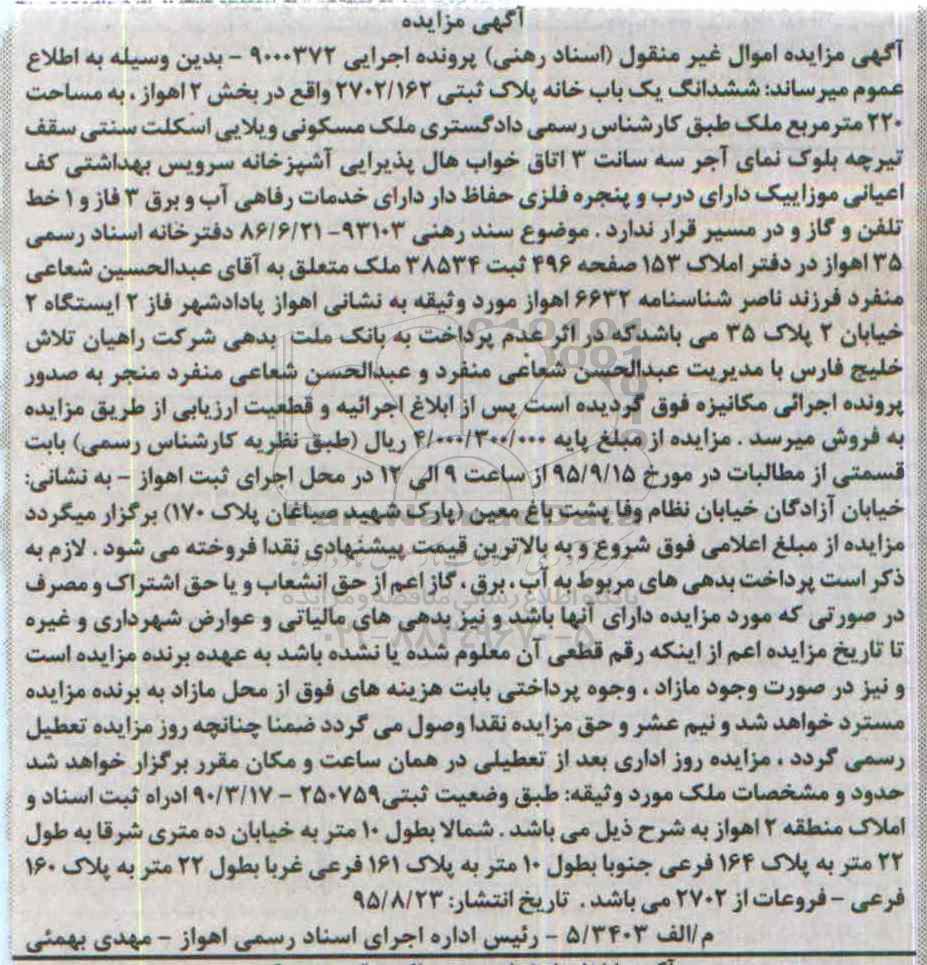 آگهی مزایده
آگهی مزایده اموال غیر منقول (اسناد رهنی) پرونده اجرایی ۹۰۰۰۳۷۲ - بدین وسیله به اطلاع
عموم میرساند: ششدانگ یک باب خانه پلاک ثبتی ۲۷۰۲/۱۶۲ واقع در بخش ۲ اهواز ، به مساحت
۲۲۰ مترمربع ملک طبق کارشناس رسمی دادگستری ملک مسکونی ویلایی اسکلت سنتی سقف
تیرچه بلوک نمای آجر سه سانت ۳ اتاق خواب هال پذیرایی آشپزخانه سرویس بهداشتی کف
اعیانی موزاییک دارای درب و پنجره فلزی حفاظ دار دارای خدمات رفاهی آب و برق ۳ فاز و ۱ خط
تلفن و گاز و در مسیر قرار ندارد . موضوع سند رهنی ۹۳۱۰۳- ۸۶/۶/۲۱ دفترخانه اسناد رسمی
۳۵ اهواز در دفتر املاک ۱۵۳ صفحه ۴۹۶ ثبت ۳۸۵۳۴ ملک متعلق به آقای عبدالحسین شعاعی
منفرد فرزند ناصر شناسنامه ۶۶۳۲ اهواز مورد وثیقه به نشانی اهواز پادادشهر فاز ۲ ایستگاه ۲
خیابان ۲ پلاک ۳۵ می باشدکه در اثر عدم پرداخت به بانک ملت بدهی شرکت راهیان تلاش
خلیج فارس با مدیریت عبدالحسن شعاعی منفرد و عبدالحسن شعاعی منفرد منجر به صدور
پرونده اجرائی مکانیزه فوق گردیده است پس از ابلاغ اجرائیه و قطعیت ارزیابی از طریق مزایده
به فروش میرسد . مزایده از مبلغ پایه ۴/۰۰۰/۳۰۰/۰۰۰ ریال (طبق نظریه کارشناس رسمی) بابت
قسمتی از مطالبات در مورخ ۹۵/۹/۱۵ از ساعت ۹ الی ۱۲ در محل اجرای ثبت اهواز - به نشانی:
خیابان آزادگان خیابان نظام وفا پشت باغ معین (پارک شهید صباغان پلاک ۱۷۰) برگزار میگردد
مزایده از مبلغ اعلامی فوق شروع و به بالاترین قیمت پیشنهادی نقدا فروخته می شود . لازم به
ذکر است پرداخت بدهی های مربوط به آب ، برق ، گاز اعم از حق انشعاب و یا حق اشتراک و مصرف
در صورتی که مورد مزایده دارای آنها باشد و نیز بدهی های مالیاتی و عوارض شهرداری و غیره
تا تاریخ مزایده اعم از اینکه رقم قطعی آن معلوم شده یا نشده باشد به عهده برنده مزایده است
و نیز در صورت وجود مازاد ، وجوه پرداختی بابت هزینه های فوق از محل مازاد به برنده مزایده
مسترد خواهد شد و نیم عشر و حق مزایده نقدا وصول می گردد ضمنا چنانچه روز مزایده تعطیل
رسمی گردد ، مزایده روز اداری بعد از تعطیلی در همان ساعت و مکان مقرر برگزار خواهد شد
حدود و مشخصات ملک مورد وثیقه: طبق وضعیت ثبتی۲۵۰۷۵۹ - ۹۰/۳/۱۷ ادراه ثبت اسناد و
املاک منطقه ۲ اهواز به شرح ذیل می باشد . شمالا بطول ۱۰ متر به خیابان ده متری شرقا به طول
۲۲ متر به پلاک ۱۶۴ فرعی جنوبا بطول ۱۰ متر به پلاک ۱۶۱ فرعی غربا بطول ۲۲ متر به پلاک ۱۶۰
فرعی - فروعات از ۲۷۰۲ می باشد . تاریخ انتشار: ۹۵/۸/۲۳
م/الف ۵/۳۴۰۳ - رئیس اداره اجرای اسناد رسمی اهواز - مهدی بهمئی